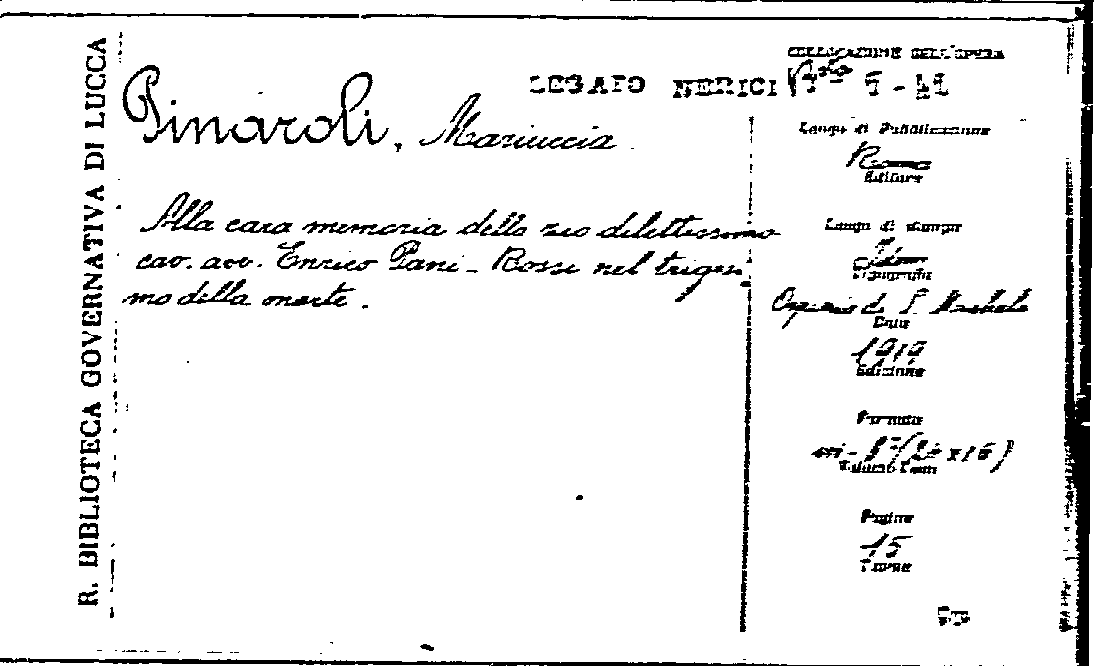 R. BIBLIOTECA GOVERNATIVA DI LUCCA
COLLOCAZIONE DELL'OPERA
LEGATO NERICI
Pinaroli, Mariuccia
Alla cara memoria dello zio dilettissimo
cav. avv. Enrico Pani-Rossi nel trigesi-
mo della morte.
Luogo di Pubblicazione
Roma
Editore
Luogo di stampa
Idem
Tipografia
Data
1919
Edizione
Formato
Volumi
Pagine
15
Tavole